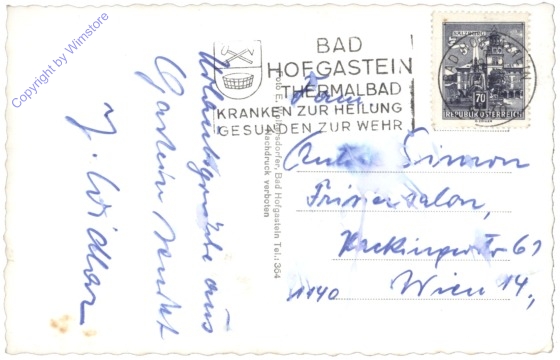 Copyright by Wimstore
Urlaubsgrüße aus
Gastein sendet
BAD
HOFGASTEIN
THERMALBAD
KRANKEN ZUR HEILUNG
GESUNDEN ZUR WEHR
SALZBURG
70
REPUBLIK ÖSTERREICH
Bad Hofgastein Tel.: 364
Nachdruck verboten
Fam
Anton Simon
Frisiersalon,
Hackingerstr 67
1140 Wien 14.,